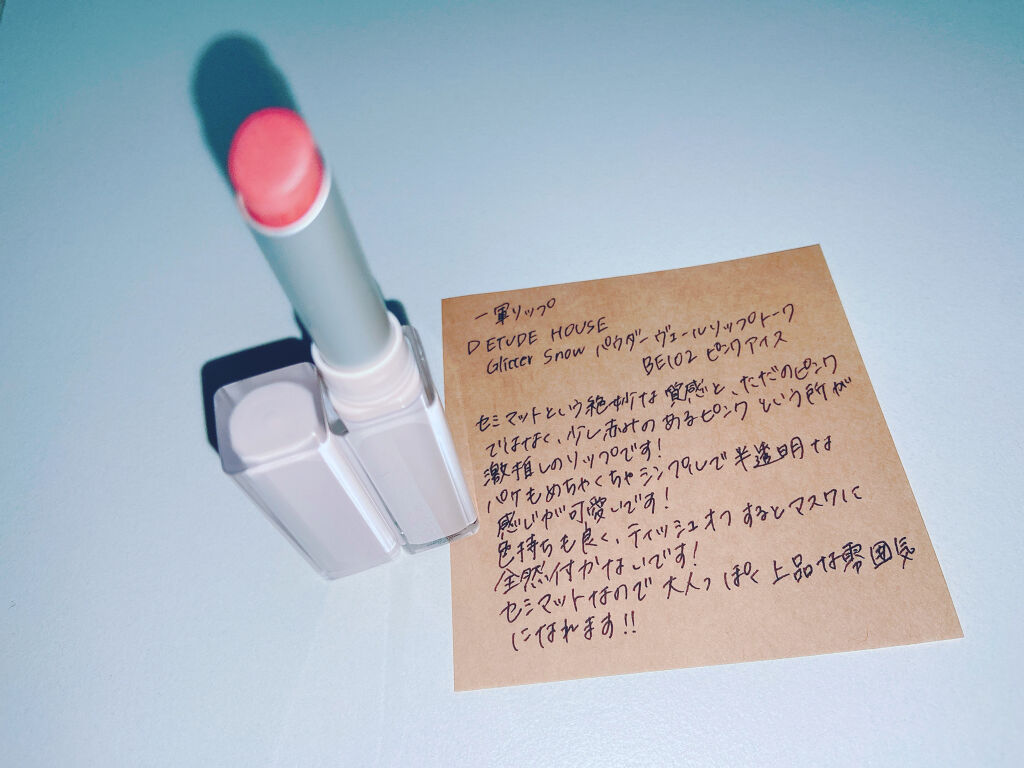 一軍リップ
DETUDE HOUSE
Glitter Snow パウダーヴェールリップトーク
BE102 ピンクアイス
セミマットという絶妙な質感と、ただのピンク
ではなく、少し赤みのあるピンクという所が
激推しのリップです!
パケもめちゃくちゃシンプルで半透明な
感じが可愛いです!
色持ちも良く、ティッシュオフするとマスクに
全然付かないです!
セミマットなので大人っぽく上品な雰囲気
になれます!!